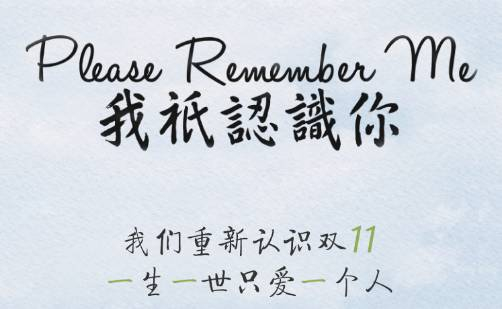 Please Remember Me
我祇認識你
我们重新认识双11
一生一世只爱一个人